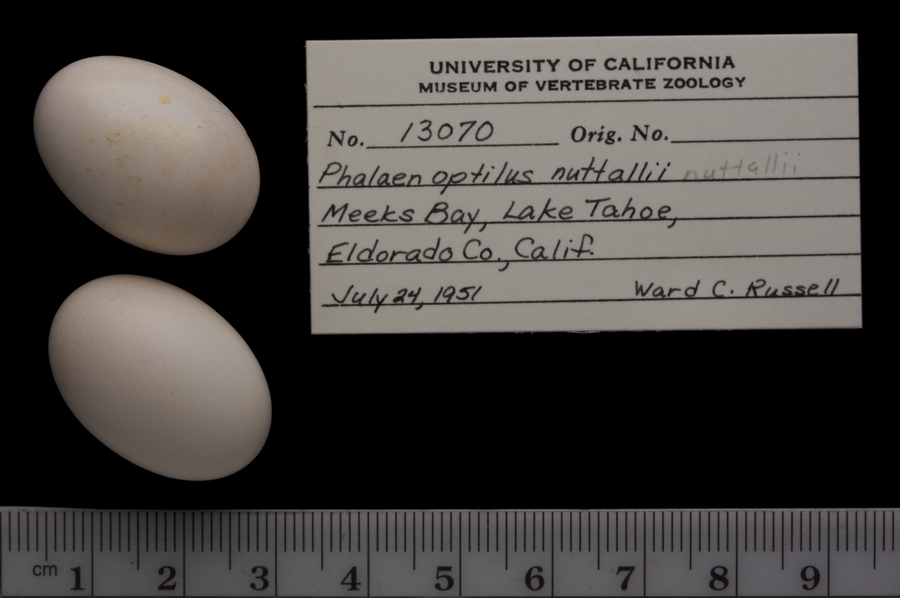 UNIVERSITY OF CALIFORNIA
MUSEUM OF VERTEBRATE ZOOLOGY
No. 13070 Orig. No.
Phalaenoptilus nuttallii nuttallii
Meeks Bay, Lake Tahoe,
Eldorado Co., Calif.
July 24, 1951 Ward C. Russell
cm 1 2 3 4 5 6 7 8 9